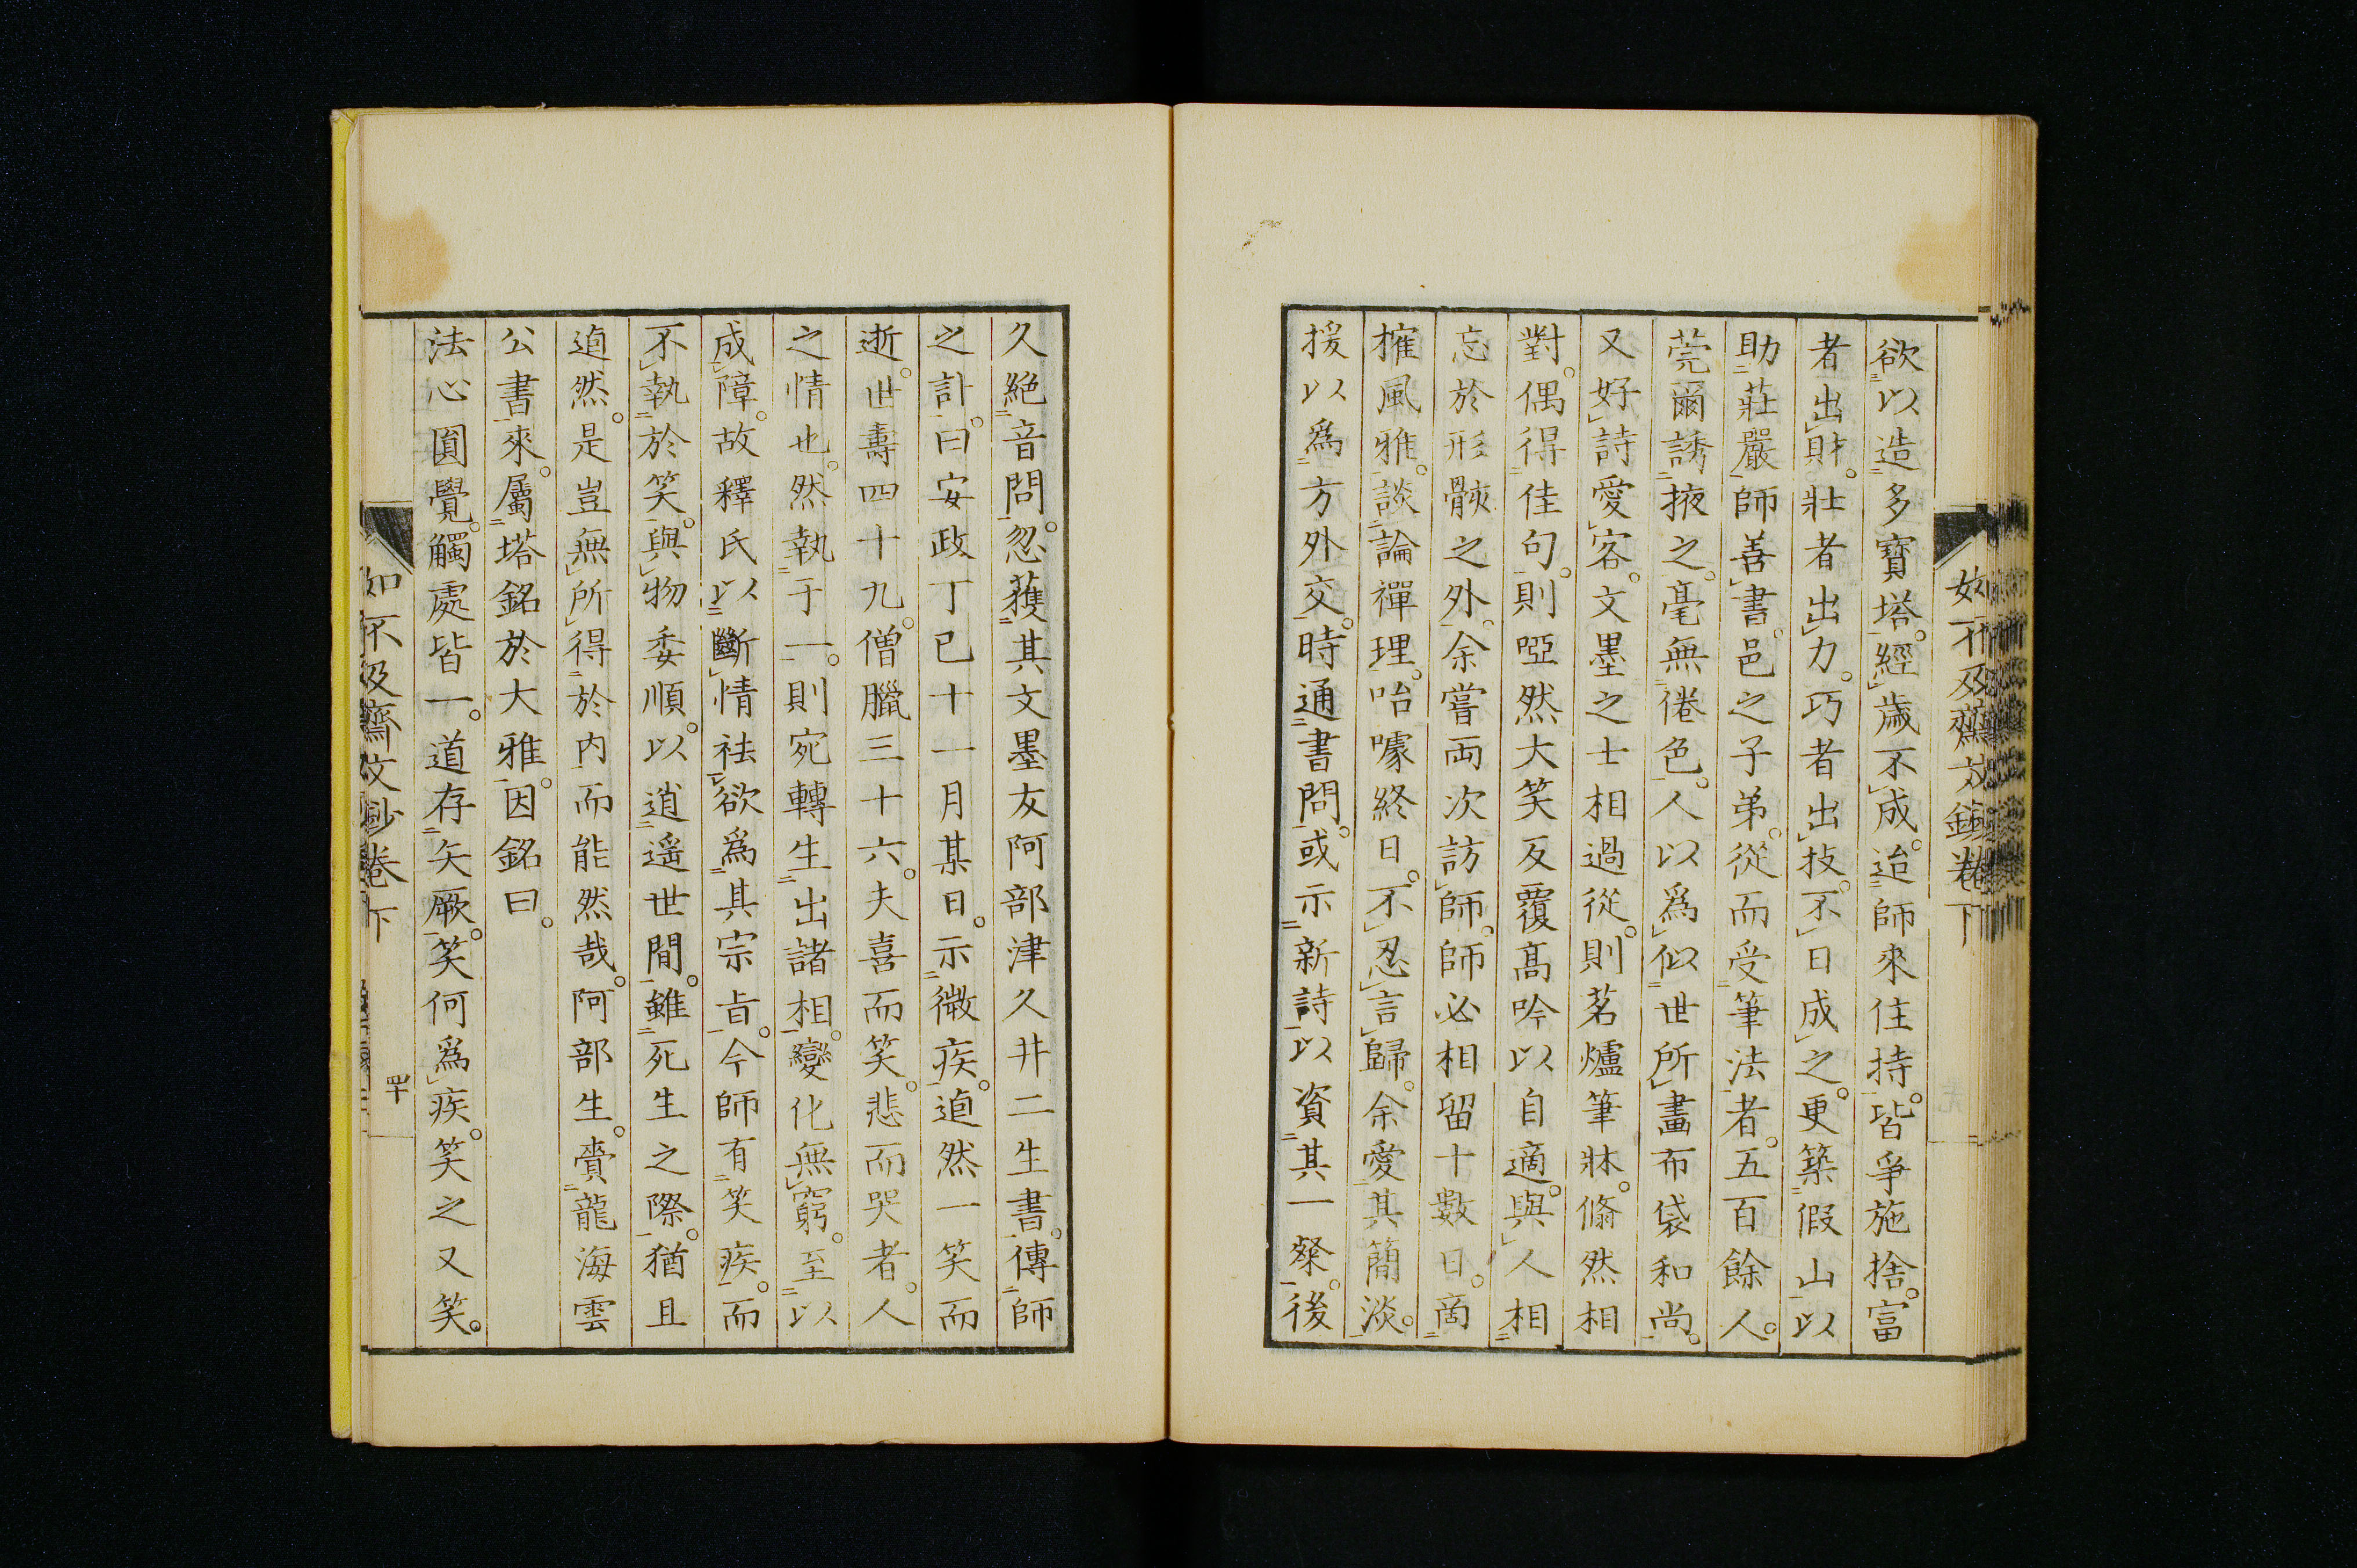 如不及齋文鈔卷下
欲以造多寶塔。經歲不成。迨師來住持。皆爭施捨。富
者出財。壯者出力。巧者出技。不日成之。更築假山以
助莊嚴師善書。邑之子弟。從而受筆法者。五百餘人。
莞爾誘掖之。毫無倦色。人以爲似世所畫布袋和尚。
又好詩愛客。文墨之士相過從。則茗爐筆牀。翛然相
對。偶得佳句。則啞然大笑反覆高吟以自適。與人相
忘於形骸之外。余嘗兩次訪師。師必相留十數日。商
搉風雅。談論禪理。咍噱終日。不忍言歸。余愛其簡淡。
援以爲方外交。時通書問。或示新詩以資其一粲。後
久絕音問。忽獲其文墨友阿部津久井二生書。傳師
之訃。曰安政丁巳十一月某日。示微疾。逌然一笑而
逝。世壽四十九。僧臘三十六。夫喜而笑。悲而哭者。人
之情也。然執于一。則宛轉生出諸相。變化無窮。至以
成障。故釋氏以斷情祛欲爲其宗旨。今師有笑疾。而
不執於笑。與物委順。以逍遙世間。雖死生之際。猶且
逌然。是豈無所得於内而能然哉。阿部生。賷龍海雲
公書來。屬塔銘於大雅。因銘曰。
法心圓覺。觸處皆一。道存矢厥。笑何爲疾。笑之又笑。
如不及齋文鈔卷下
四十